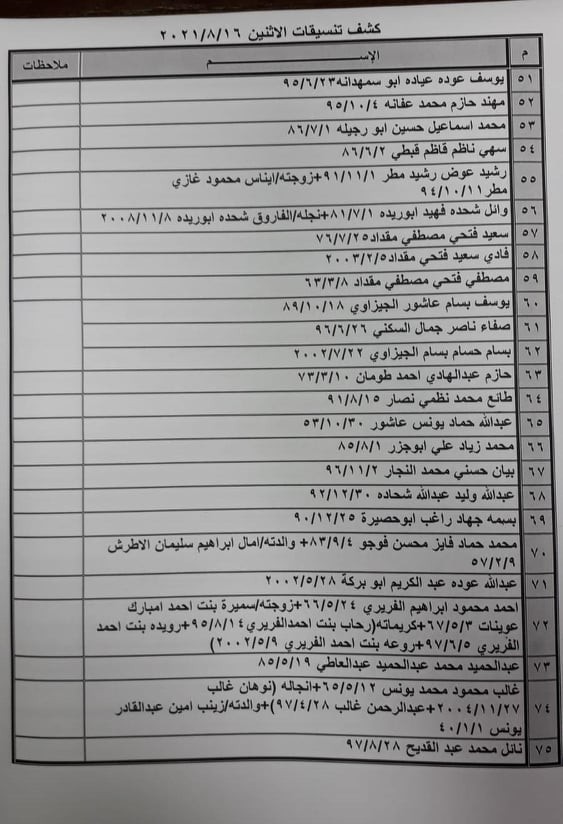 كشف تنسيقات الاثنين ٢٠٢١/٨/١٦
م الإســـم ملاحظات
٥١ يوسف عوده عياده ابو سمهدانه٩٥/٦/٢٣
٥٢ مهند حازم محمد عفانه ٩٥/١٠/٤
٥٣ محمد اسماعيل حسين ابو رجيله ٨٦/٧/١
٥٤ سهي ناظم قاظم قبطي ٨٦/٦/٢
٥٥ رشيد عوض رشيد مطر ٩١/١١/١+زوجته/ايناس محمود غازي
مطر٩٤/١٠/١١
٥٦ وائل شحده فهيد ابوريده ٨١/٧/١+نجله/الفاروق شحده ابوريده ٢٠٠٨/١١/٨
٥٧ سعيد فتحي مصطفي مقداد٧٦/٧/٢٥
٥٨ فادي سعيد فتحي مقداد٢٠٠٣/٢/٥
٥٩ مصطفي فتحي مصطفي مقداد ٦٣/٣/٨
٦٠ يوسف بسام عاشور الجيزاوي ٨٩/١٠/١٨
٦١ صفاء ناصر جمال السكني ٩٦/٦/٢٦
٦٢ بسام حسام بسام الجيزاوي ٢٠٠٢/٧/٢٢
٦٣ حازم عبدالهادي احمد طومان ٧٣/٣/١٠
٦٤ طائع محمد نظمي نصار ٩١/٨/١٥
٦٥ عبدالله حماد يونس عاشور ٥٣/١٠/٣٠
٦٦ محمد زياد علي ابوجزر ٨٥/٨/١
٦٧ بيان حسني محمد النجار ٩٦/١١/٢
٦٨ عبدالله وليد عبدالله شحاده ٩٢/١٢/٣٠
٦٩ بسمه جهاد راغب ابوحصيرة ٩٠/١٢/٢٥
٧٠ محمد حماد فايز محسن فوجو ٨٣/٩/٤+ والدته/امال ابراهيم سليمان الاطرش
٥٧/٢/٩
٧١ عبدالله عوده عبد الكريم ابو بركة ٢٠٠٢/٥/٢٨
٧٢ احمد محمود ابراهيم الفريري ٦٦/٥/٢٤+زوجته/سميرة بنت احمد امبارك
عوينات ٦٧/٥/٣+كريماته(رحاب بنت احمدالفريري٩٥/٨/١٤+رويده بنت احمد
الفريري ٩٧/٦/٥+روعه بنت احمد الفريري ٢٠٠٢/٥/٩)
٧٣ عبدالحميد محمد عبدالحميد عبدالعاطي ٨٥/٥/١٩
٧٤ غالب محمود محمد يونس ٦٥/٥/١٢+انجاله (نوهان غالب
٢٠٠٤/١١/٢٧+عبدالرحمن غالب ٩٧/٤/٢٨)+والدته/زينب امين عبدالقادر
يونس ٤٠/١/١
٧٥ نائل محمد عبد القديح ٩٧/٨/٢٨